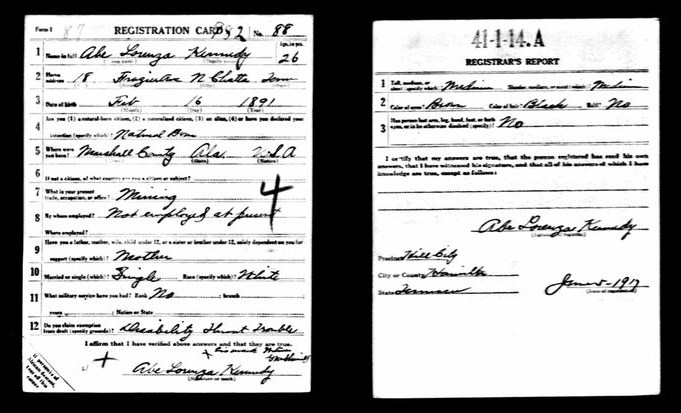 Form 1
87
REGISTRATION CARD
982
No. 88
1 Name in full Abe Lorenza Kennedy
Age, in yrs. 26
2 Home address 18 Frazier Ave N Chatta Tenn
3 Date of birth Feb 16 1891
(Month) (Day) (Year)
4 Are you (1) a natural-born citizen, (2) a naturalized citizen, (3) an alien, (4) or have you declared your
intention (specify which)? Natural Born
5 Where were you born? Marshall County Ala. U.S.A
(Town) (State) (Nation)
6 If not a citizen, of what country are you a citizen or subject?
7 What is your present trade, occupation, or office? Mining
4
8 By whom employed? Not employed at present
Where employed?
9 Have you a father, mother, wife, child under 12, or a sister or brother under 12, solely dependent on you for
support (specify which)? Mother
10 Married or single (which)? Single Race (specify which)? White
11 What military service have you had? Rank No ; branch
years ; Nation or State
12 Do you claim exemption from draft (specify grounds)? Disability
Trouble
I affirm that I have verified above answers and that they are true.
his mark
Abe Lorenza Kennedy
(Signature or mark)
41-1-14. A
REGISTRAR'S REPORT
1 Tall, medium, or short (specify which)? Medium Slender, medium, or stout (which)? Medium
2 Color of eyes? Brown Color of hair? Black Bald? No
3 Has person lost arm, leg, hand, foot, or both eyes, or is he otherwise disabled (specify)? No
I certify that my answers are true, that the person registered has read his own
answers, that I have witnessed his signature, and that all of his answers of which I have
knowledge are true, except as follows:
Abe Lorenza Kennedy
Precinct Hill City
City or County Hamilton
State Tennessee
June 5 - 1917